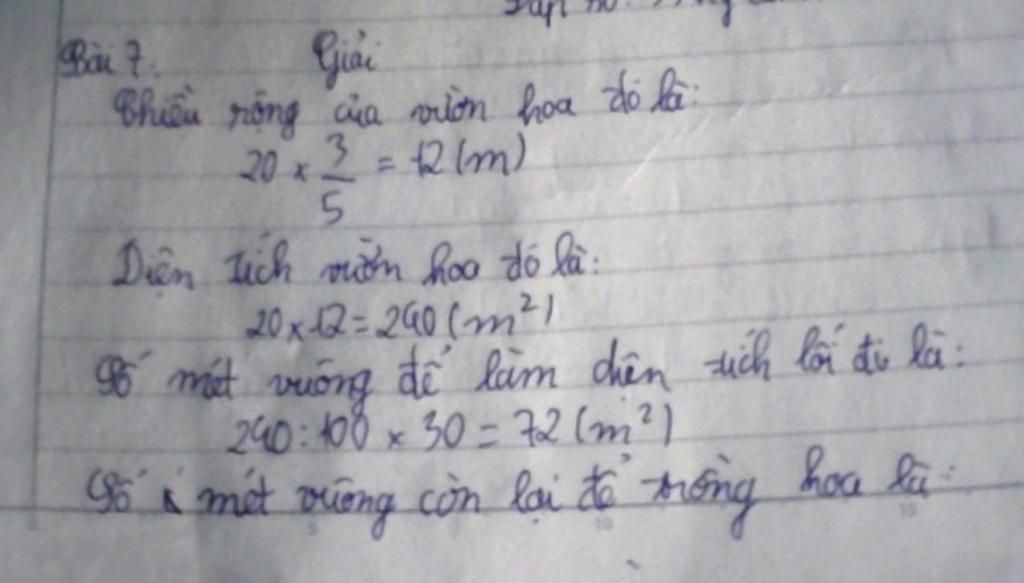 Bài 7. Giải
Chiều rộng của vườn hoa đó là:
20 × 3/5 = 12 (m)
Diện tích vườn hoa đó là:
20 × 12 = 240 (m²)
Số mét vuông để làm diện tích lối đi là:
240 : 100 × 30 = 72 (m²)
Số mét vuông còn lại để trồng hoa là: